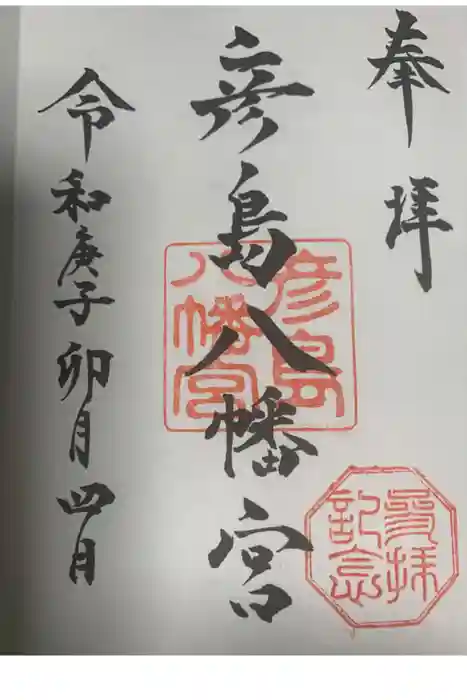 奉拝
彦島八幡宮
令和庚子卯月四月
彦島
八幡宮
参拝
記念